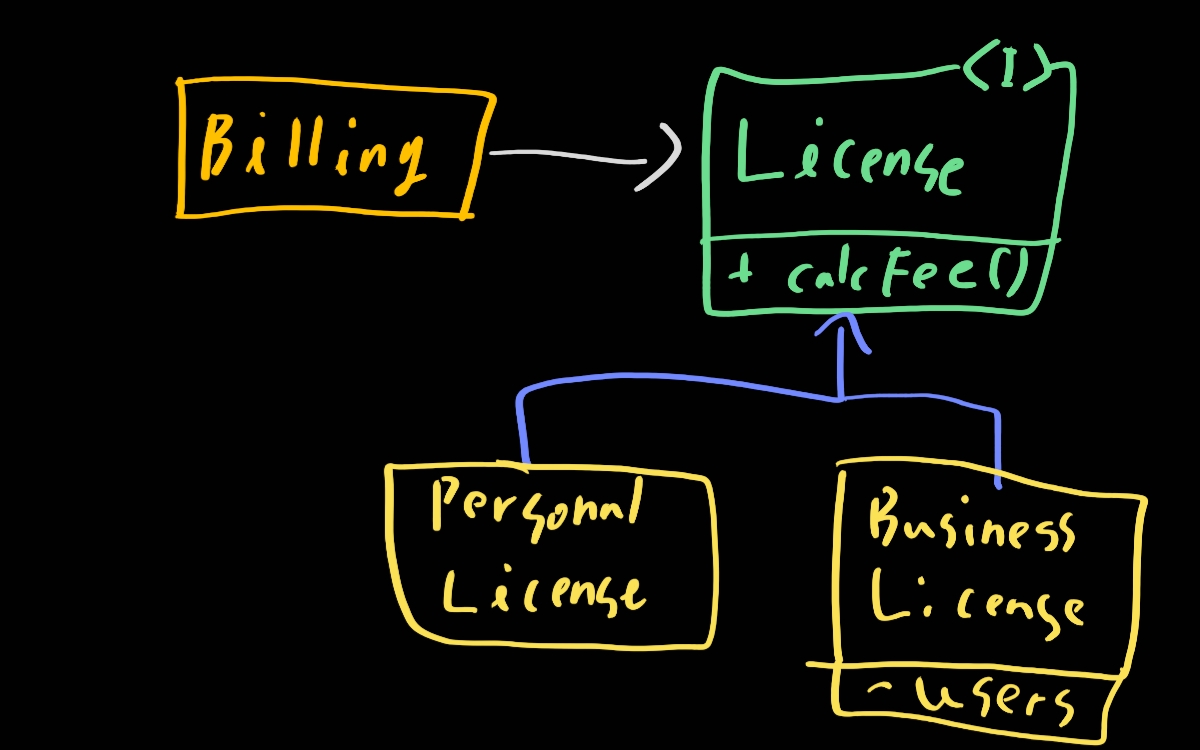 <I>
Billing
License
+ calcFee()
Personal
License
Business
License
- users